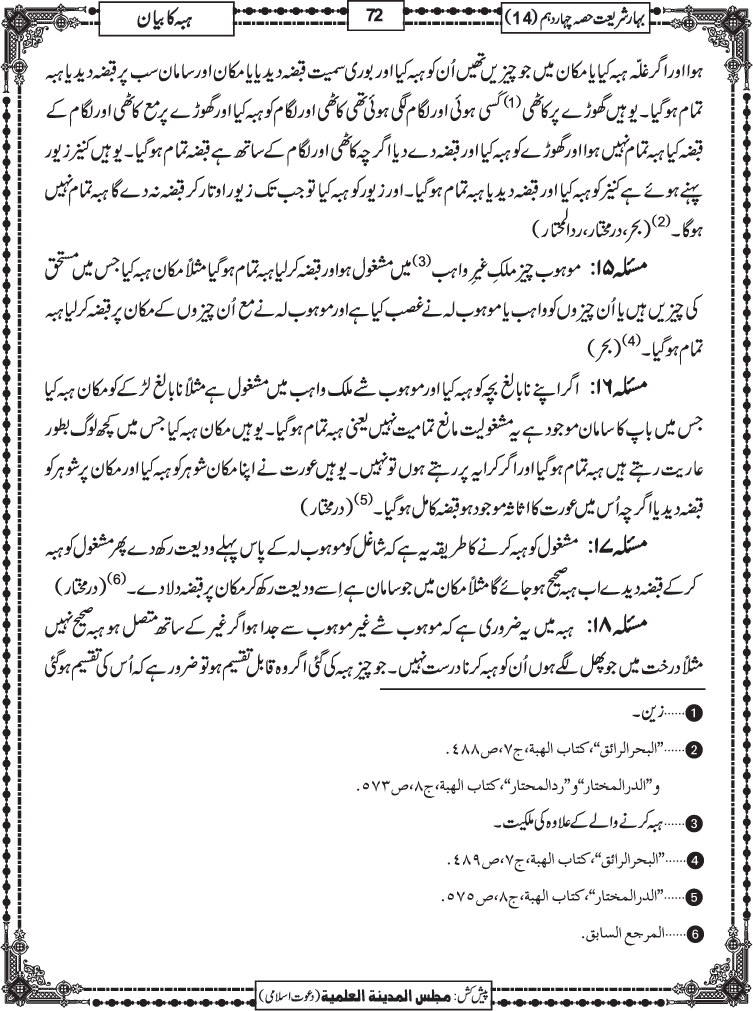 بہار شریعت حصہ چہاردہم (14)
72
ہبہ کا بیان
ہوا اور اگر غلّہ ہبہ کیا یا مکان میں جو چیزیں تھیں اُن کو ہبہ کیا اور بوری سمیت قبضہ دیدیا یا مکان اور سامان سب پر قبضہ دیدیا ہبہ
تمام ہوگیا۔ یوہیں گھوڑے پر کاٹھی (1) کَسی ہوئی اور لگام لگی ہوئی تھی کاٹھی اور لگام کو ہبہ کیا اور گھوڑے پر مع کاٹھی اور لگام کے
قبضہ کیا ہبہ تمام نہیں ہوا اور گھوڑے کو ہبہ کیا اور قبضہ دے دیا اگرچہ کاٹھی اور لگام کے ساتھ ہے قبضہ تمام ہوگیا۔ یوہیں کنیز زیور
پہنے ہوئے ہے کنیز کو ہبہ کیا اور قبضہ دیدیا ہبہ تمام ہوگیا۔ اور زیور کو ہبہ کیا تو جب تک زیور اوتار کر قبضہ نہ دے گا ہبہ تمام نہیں
ہوگا۔ (2) (بحر، درمختار، ردالمحتار)
مسئلہ ۱۵: موہوب چیز ملکِ غیرِ واہب (3) میں مشغول ہو اور قبضہ کرلیا ہبہ تمام ہوگیا مثلاً مکان ہبہ کیا جس میں مستحق
کی چیزیں ہیں یا اُن چیزوں کو واہب یا موہوب لہ نے غصب کیا ہے اور موہوب لہ نے مع اُن چیزوں کے مکان پر قبضہ کرلیا ہبہ
تمام ہوگیا۔ (4) (بحر)
مسئلہ ۱۶: اگر اپنے نابالغ بچہ کو ہبہ کیا اور موہوب شے ملک واہب میں مشغول ہے مثلاً نابالغ لڑکے کو مکان ہبہ کیا
جس میں باپ کا سامان موجود ہے یہ مشغولیت مانع تمامیت نہیں یعنی ہبہ تمام ہوگیا۔ یوہیں مکان ہبہ کیا جس میں کچھ لوگ بطور
عاریت رہتے ہیں ہبہ تمام ہوگیا اور اگر کرایہ پر رہتے ہوں تو نہیں۔ یوہیں عورت نے اپنا مکان شوہر کو ہبہ کیا اور مکان پر شوہر کو
قبضہ دیدیا اگرچہ اُس میں عورت کا اثاثہ موجود ہو قبضہ کامل ہوگیا۔ (5) (درمختار)
مسئلہ ۱۷: مشغول کو ہبہ کرنے کا طریقہ یہ ہے کہ شاغل کو موہوب لہ کے پاس پہلے ودیعت رکھ دے پھر مشغول کو ہبہ
کرکے قبضہ دیدے اب ہبہ صحیح ہوجائے گا مثلاً مکان میں جو سامان ہے اِسے ودیعت رکھ کر مکان پر قبضہ دلا دے۔ (6) (درمختار)
مسئلہ ۱۸: ہبہ میں یہ ضروری ہے کہ موہوب شے غیر موہوب سے جدا ہو اگر غیر کے ساتھ متصل ہو ہبہ صحیح نہیں
مثلاً درخت میں جو پھل لگے ہوں اُن کو ہبہ کرنا درست نہیں۔ جو چیز ہبہ کی گئی اگر وہ قابل تقسیم ہو تو ضرور ہے کہ اُس کی تقسیم ہوگئی
1......زین۔
2......"البحرالرائق"، کتاب الهبة، ج۷، ص۴۸۸.
و"الدرالمختار" و"ردالمحتار"، کتاب الهبة، ج۸، ص۵۷۳.
3......ہبہ کرنے والے کے علاوہ کی ملکیت۔
4......"البحرالرائق"، کتاب الهبة، ج۷، ص۴۸۹.
5......"الدرالمختار"، کتاب الهبة، ج۸، ص۵۷۵.
6......المرجع السابق.
پیش کش: مجلس المدینة العلمیة (دعوت اسلامی)